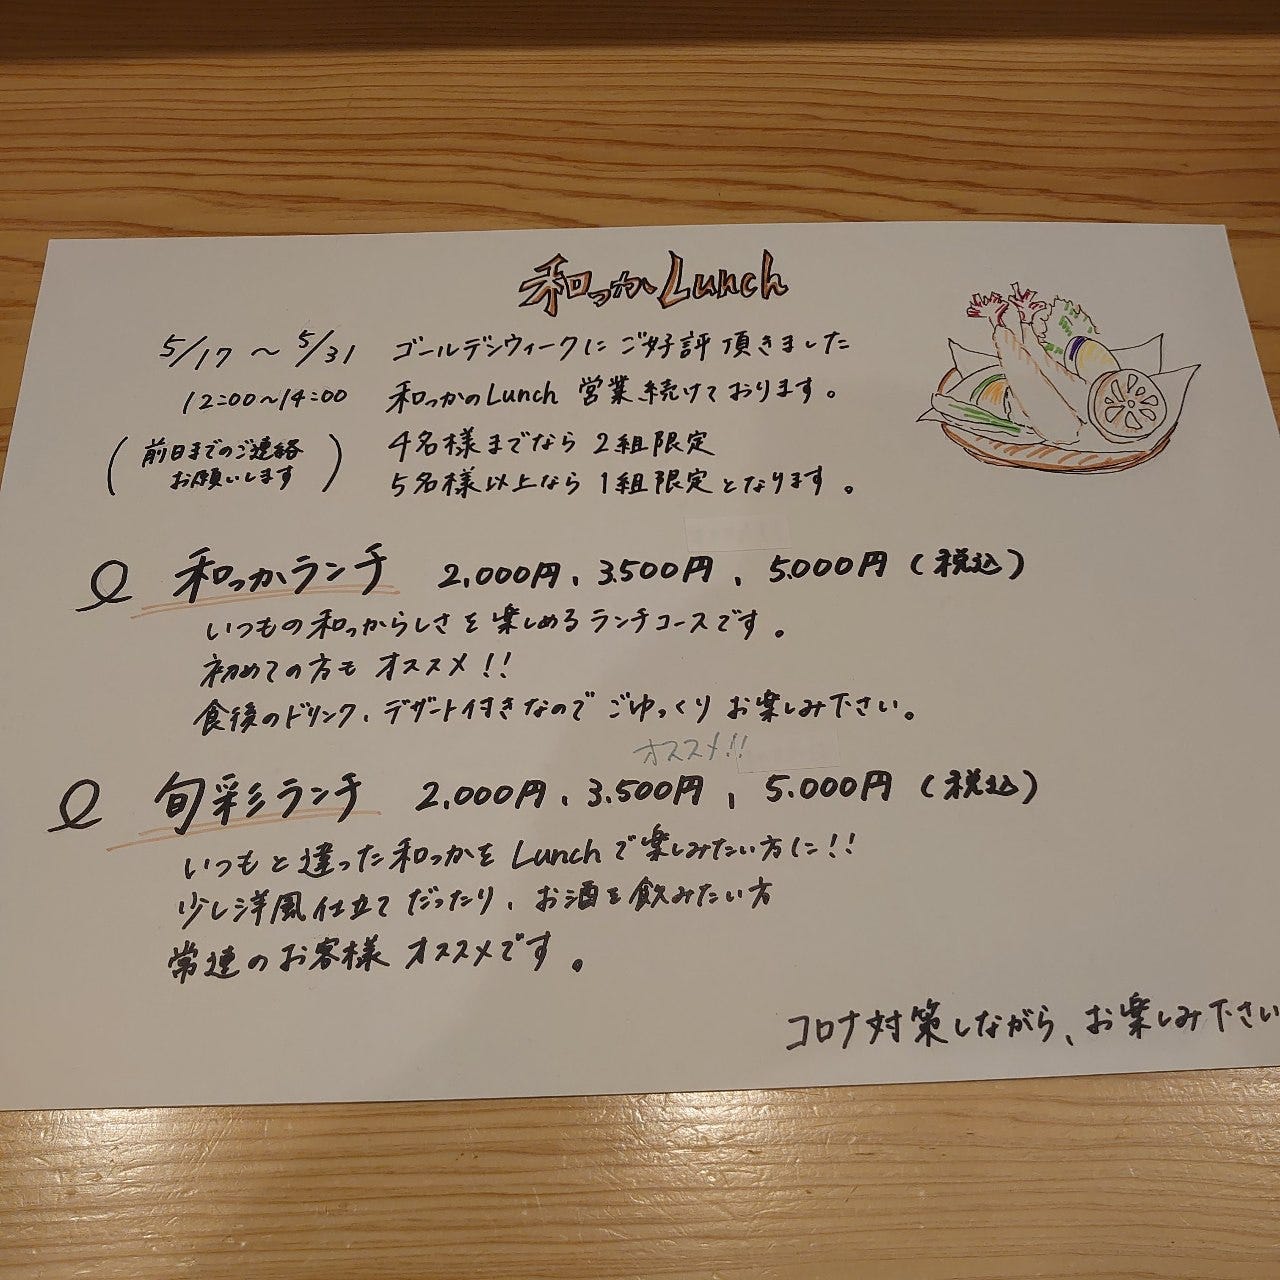 和っかLunch
5/17 〜 5/31 ゴールデンウィークにご好評頂きました
12:00〜14:00 和っかのLunch 営業続けております。
(前日までのご連絡
お願いします)
4名様までなら 2組限定
5名様以上なら 1組限定となります。
和っかランチ 2,000円、3,500円、5,000円(税込)
いつもの和っからしさを楽しめるランチコースです。
初めての方も オススメ!!
食後のドリンク、デザート付きなので ごゆっくり お楽しみ下さい。
オススメ!!
旬彩ランチ 2,000円、3,500円、5,000円(税込)
いつもと違った和っかを Lunchで楽しみたい方に!!
少し洋風仕立てだったり、お酒を飲みたい方
常連のお客様 オススメです。
コロナ対策しながら、お楽しみ下さい